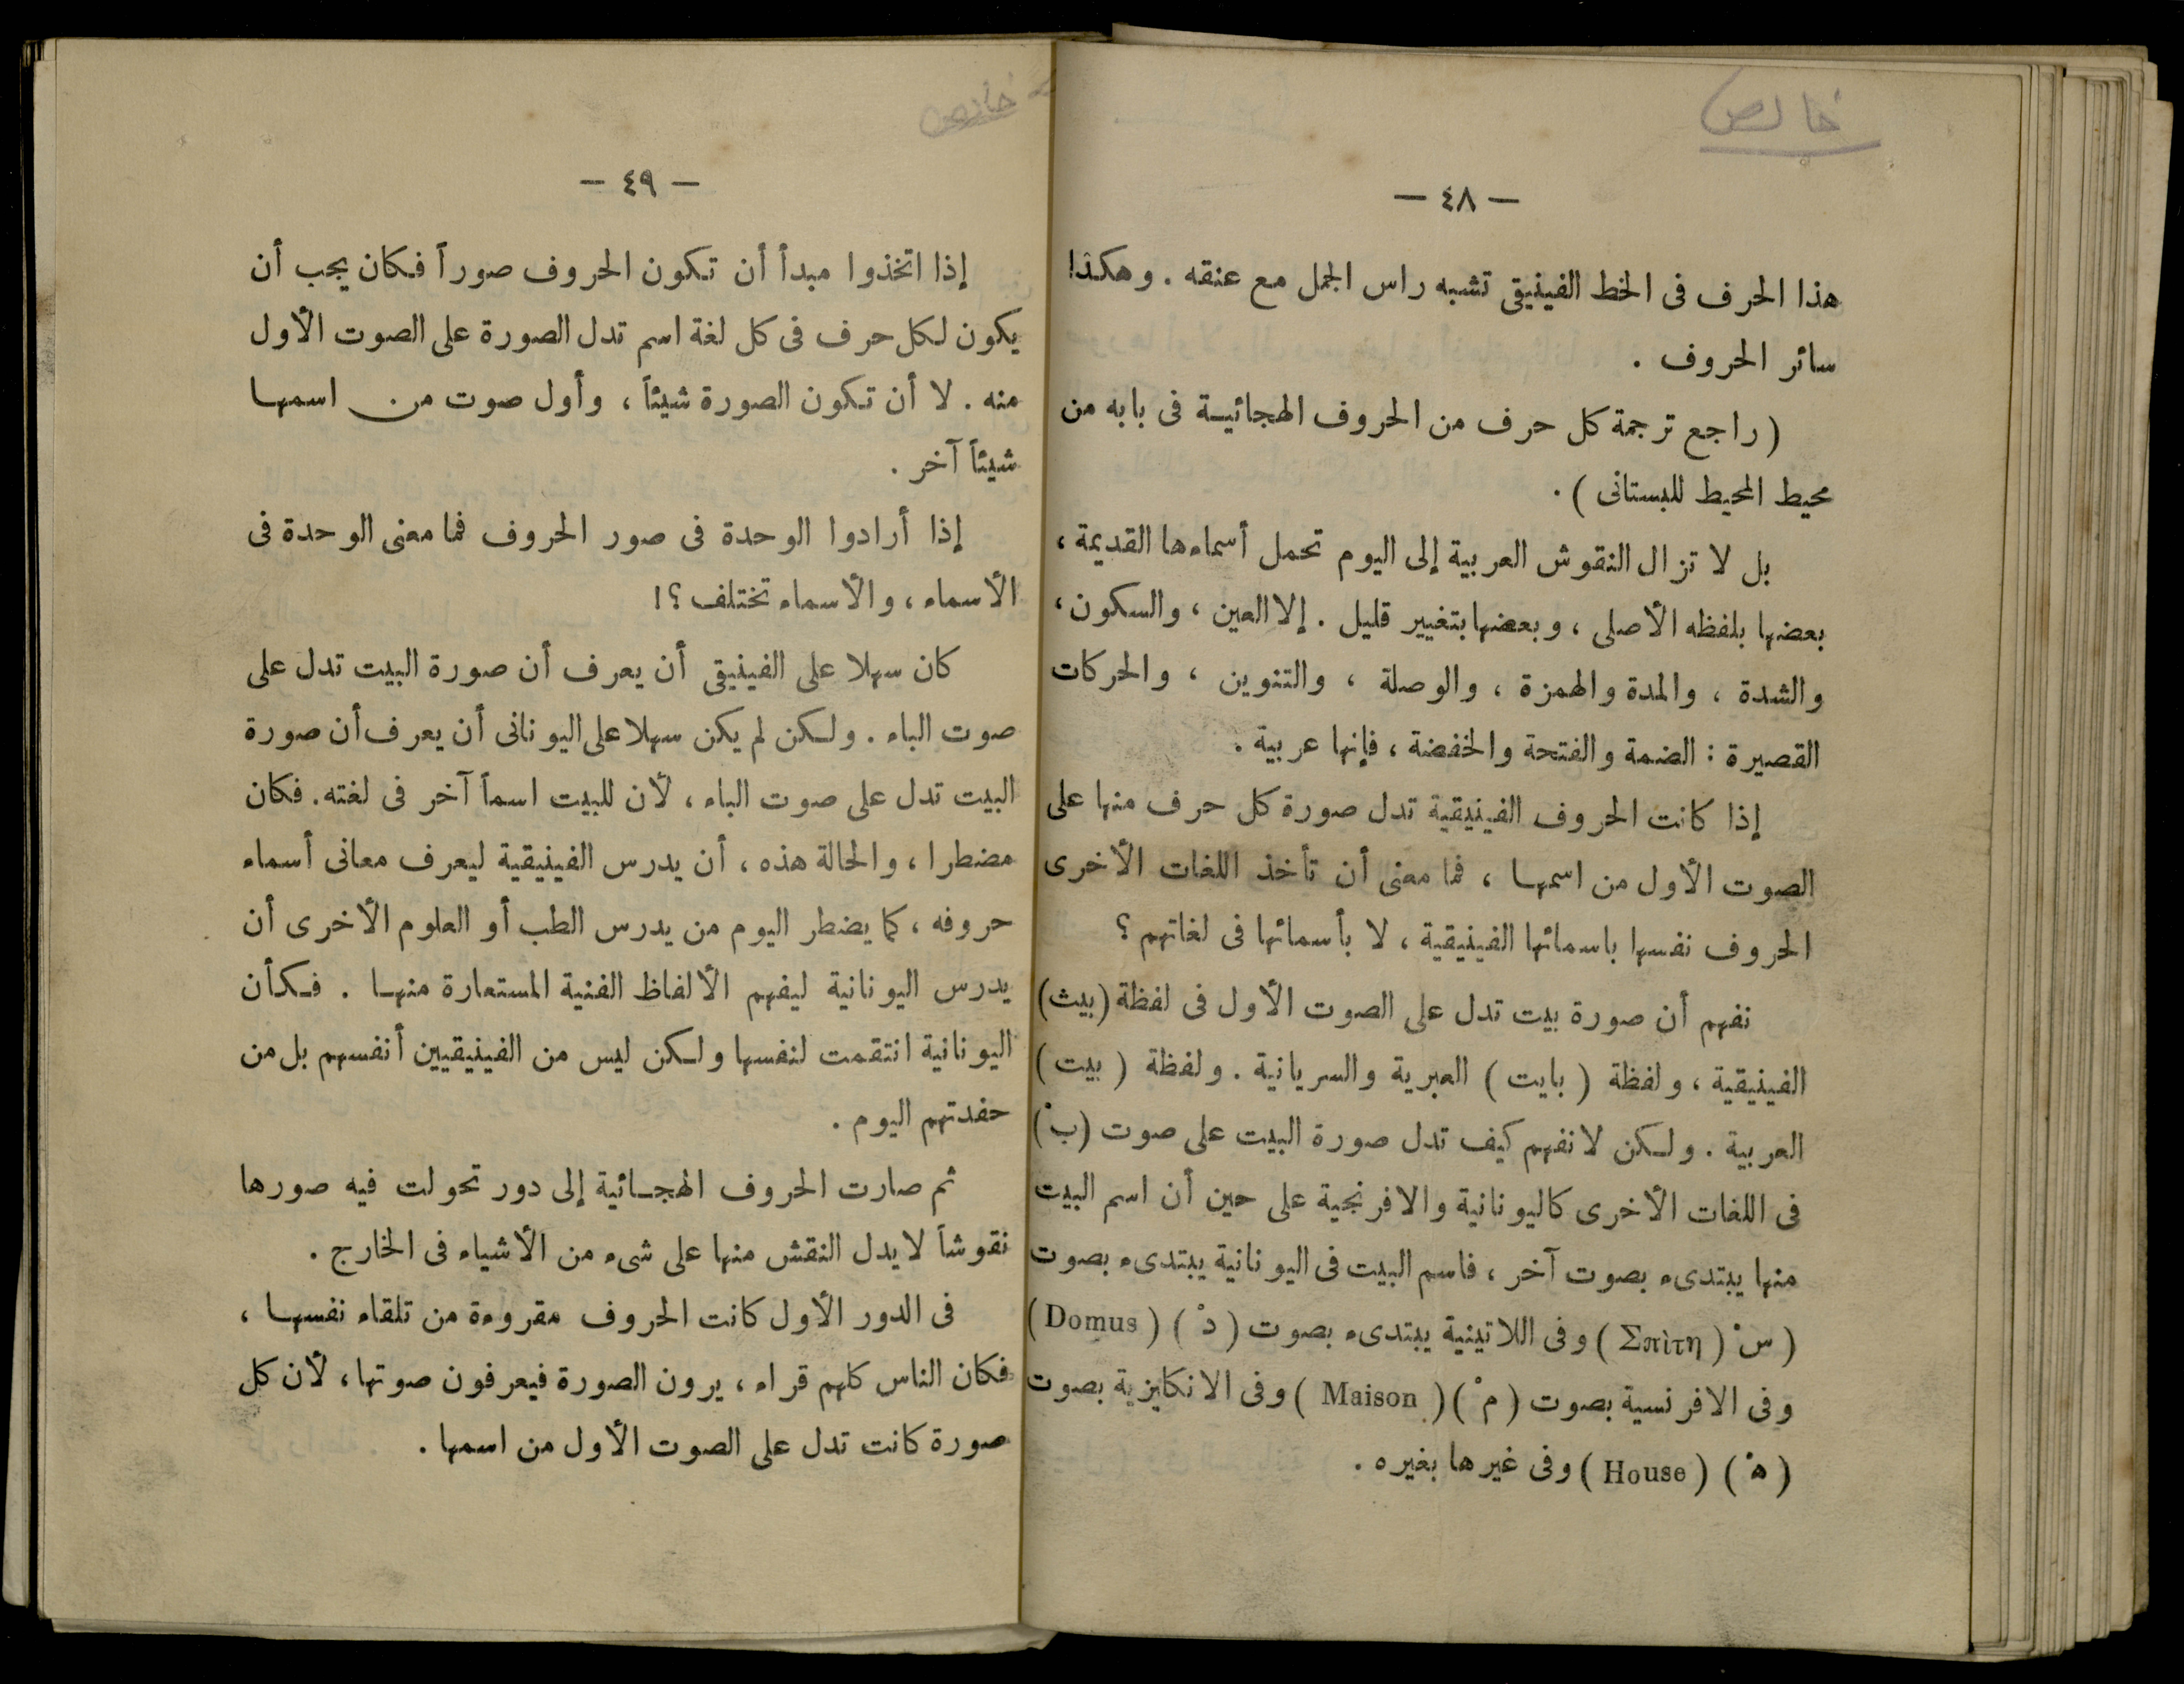 خالص
— ٤٨ —
هذا الحرف فى الخط الفينيقى تشبه راس الجمل مع عنقه . وهكذا
سائر الحروف .
( راجع ترجمة كل حرف من الحروف الهجائية فى بابه من
محيط المحيط للبستانى ) .
بل لا تزال النقوش العربية إلى اليوم تحمل أسماءها القديمة ،
بعضها بلفظه الأصلى ، وبعضها بتغيير قليل . إلا العين ، والسكون ،
والشدة ، والمدة والهمزة ، والوصلة ، والتنوين ، والحركات
القصيرة : الضمة والفتحة والخفضة ، فإنها عربية .
إذا كانت الحروف الفينيقية تدل صورة كل حرف منها على
الصوت الأول من اسمها ، فما معنى أن تأخذ اللغات الأخرى
الحروف نفسها باسمائها الفينيقية ، لا بأسمائها فى لغاتهم ؟
نفهم أن صورة بيت تدل على الصوت الأول فى لفظة (بيث)
الفينيقية ، ولفظة ( بايت ) العبرية والسريانية . ولفظة ( بيت )
العربية . ولكن لا نفهم كيف تدل صورة البيت على صوت (بْ)
فى اللغات الأخرى كاليونانية والافرنجية على حين أن اسم البيت
منها يبتدىء بصوت آخر ، فاسم البيت فى اليونانية يبتدىء بصوت
( سْ ( Σπίτη ) وفى اللاتينية يبتدىء بصوت ( دْ ) ( Domus )
وفى الافرنسية بصوت ( مْ ) ( Maison ) وفى الانكليزية بصوت
( هْ ) ( House ) وفى غيرها بغيره .
خالص
— ٤٩ —
إذا اتخذوا مبدأ أن تكون الحروف صوراً فكان يجب أن
يكون لكل حرف فى كل لغة اسم تدل الصورة على الصوت الأول
منه . لا أن تكون الصورة شيئاً ، وأول صوت من اسمها
شيئاً آخر .
إذا أرادوا الوحدة فى صور الحروف فما معنى الوحدة فى
الأسماء ، والأسماء تختلف ؟!
كان سهلا على الفينيقى أن يعرف أن صورة البيت تدل على
صوت الباء . ولكن لم يكن سهلا على اليونانى أن يعرف أن صورة
البيت تدل على صوت الباء ، لأن للبيت اسماً آخر فى لغته . فكان
مضطرا ، والحالة هذه ، أن يدرس الفينيقية ليعرف معانى أسماء
حروفه ، كما يضطر اليوم من يدرس الطب أو العلوم الأخرى أن
يدرس اليونانية ليفهم الألفاظ الفنية المستعارة منها . فكأن
اليونانية انتقمت لنفسها ولكن ليس من الفينيقيين أنفسهم بل من
حفدتهم اليوم .
ثم صارت الحروف الهجائية إلى دور تحولت فيه صورها
نقوشاً لا يدل النقش منها على شىء من الأشياء فى الخارج .
فى الدور الأول كانت الحروف مقروءة من تلقاء نفسها ،
فكان الناس كلهم قراء ، يرون الصورة فيعرفون صوتها ، لأن كل
صورة كانت تدل على الصوت الأول من اسمها .